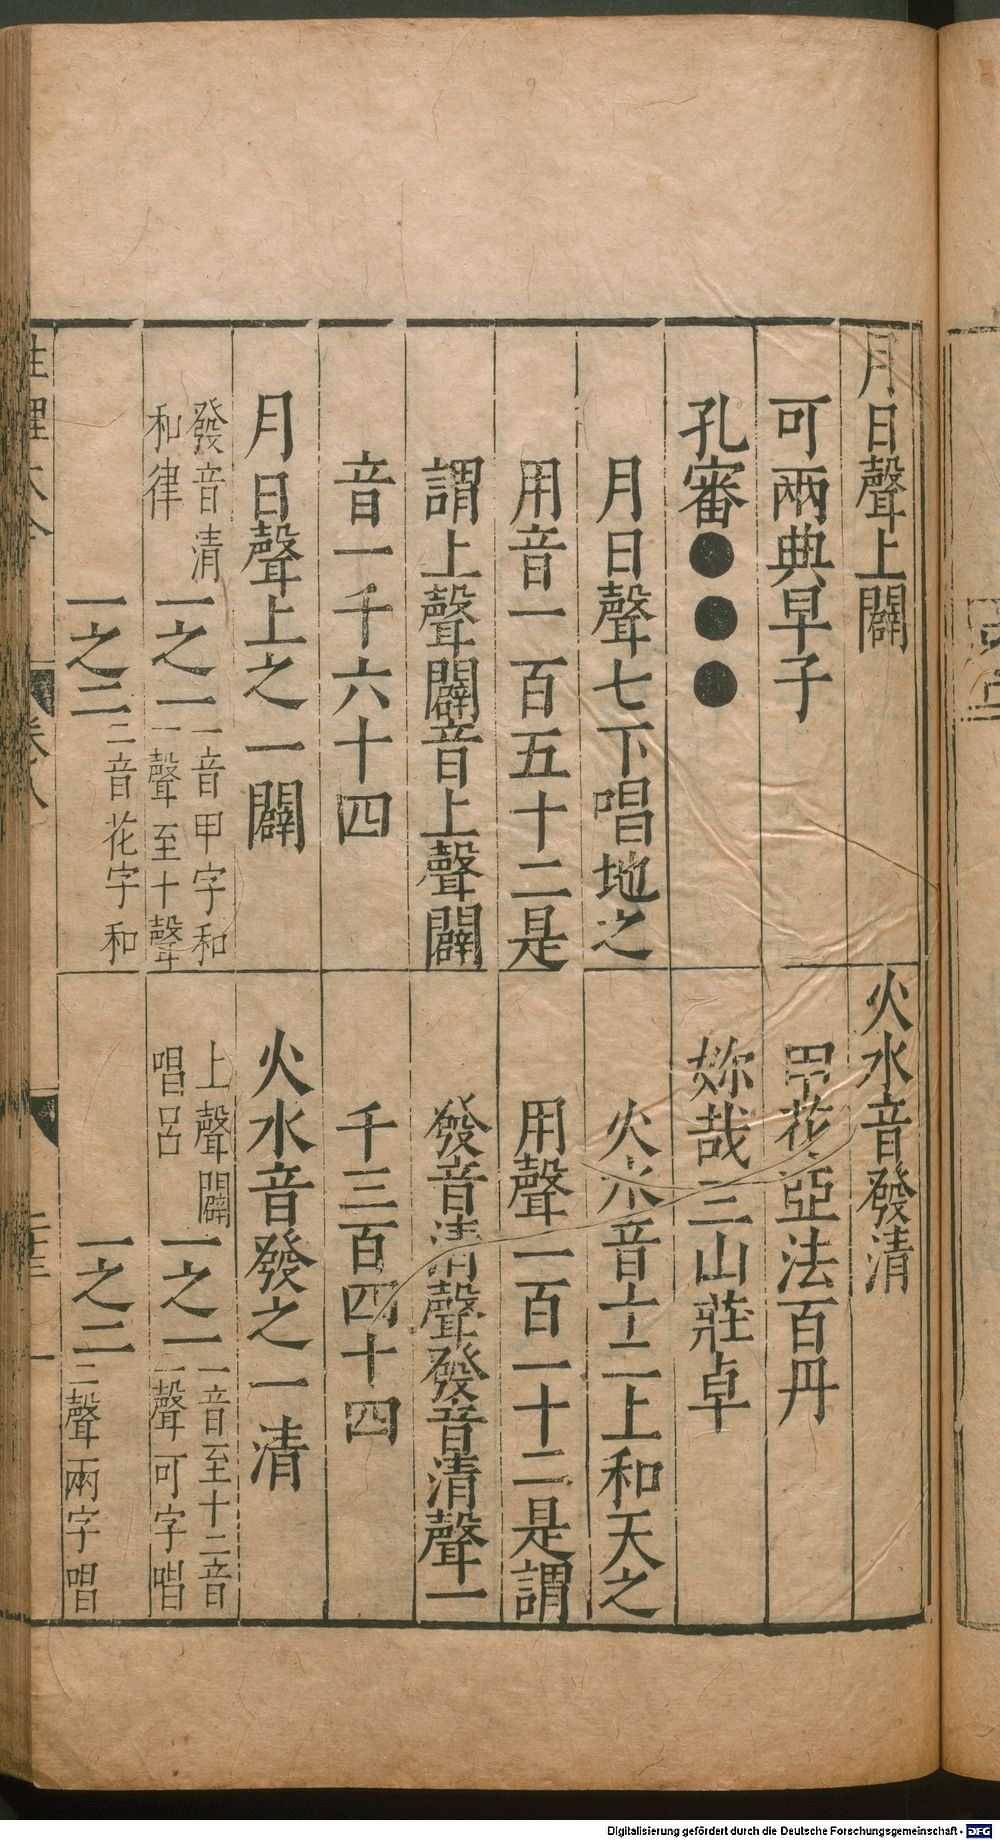 月日聲上闢
可兩典早子
孔審●●●
月日聲七下唱地之
用音一百五十二是
謂上聲闢音上聲闢
音一千六十四
月日聲上之一闢
發音清
和律
一之一
一音甲字和
一聲至十聲
一之二
二音花字和
火水音發清
甲花亞法百丹
妳哉三山莊卓
火水音十二上和天之
用聲一百一十二是謂
發音清聲發音清聲一
千三百四十四
火水音發之一清
上聲闢
唱呂
一之一
一音至十二音
一聲可字唱
一之二
二聲兩字唱
性理大全
卷八
Digitalisierung gefördert durch die Deutsche Forschungsgemeinschaft - DFG